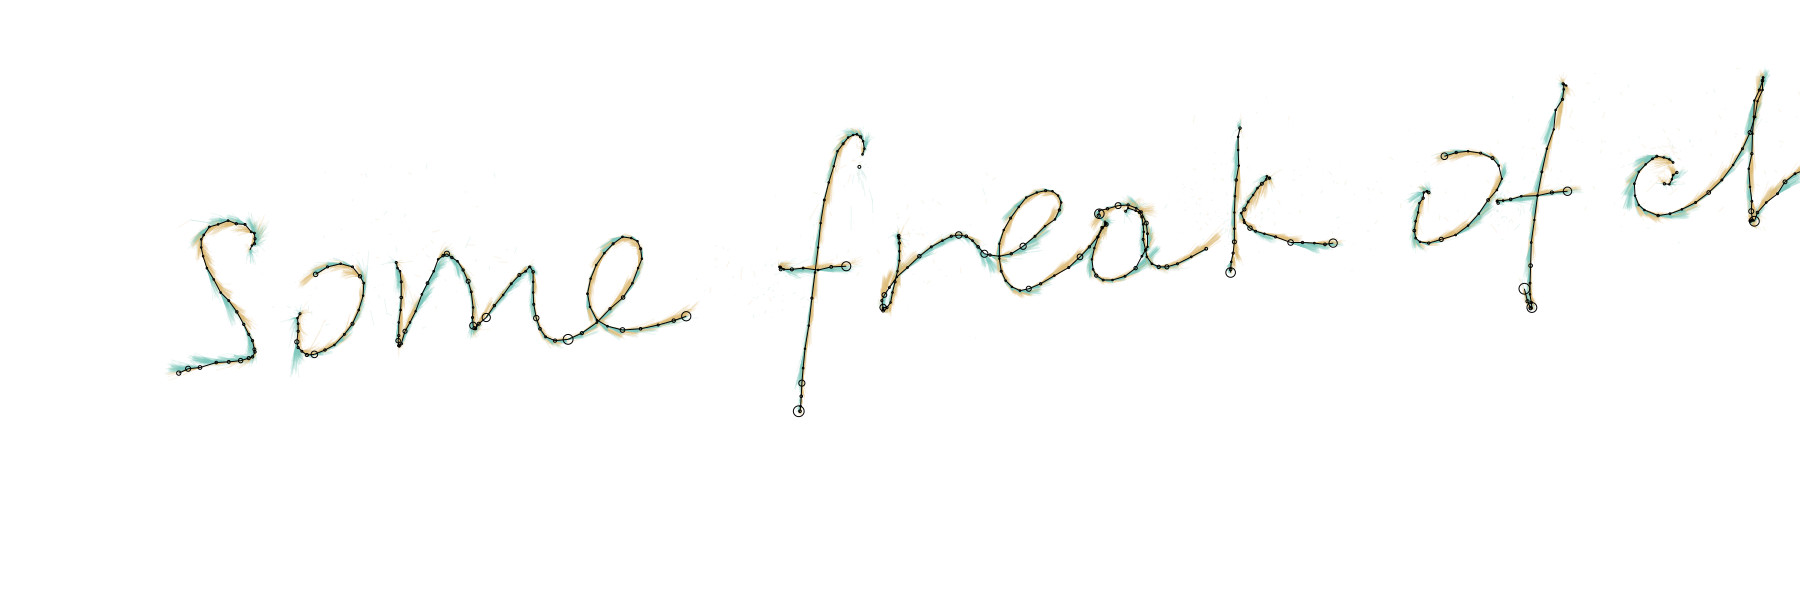 Some freak of ch